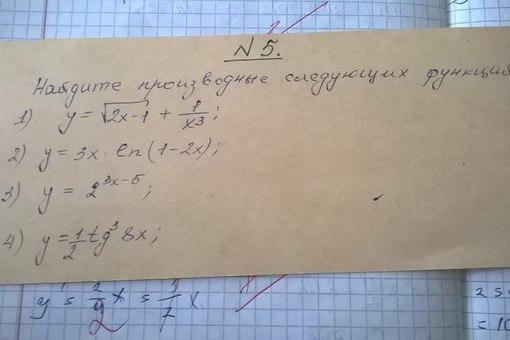 N 5.
Найдите производные следующих функций
1). y = √2x-1 + 1/x³;
2) y = 3x · ln(1-2x);
3) y = 2^(3x-5);
4) y = 1/2 tg³ 8x;